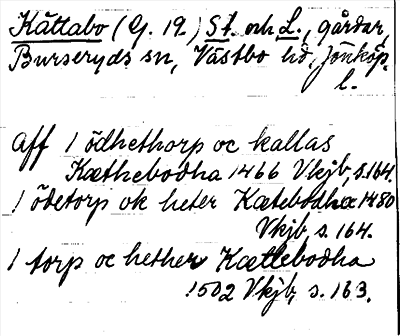 Kättabo (G. 19.) St. och L., gårdar,
Burseryds sn, Västbo hd, Jönköp.
l.
Aff 1 ödhethorp oc kallas
Kæthebodha 1466 Vkjb, s. 164.
1 ödetorp ok heter Katebodha 1480
Vkjb, s. 164.
1 torp oc hether Kættebodha
1502 Vkjb, s. 163.